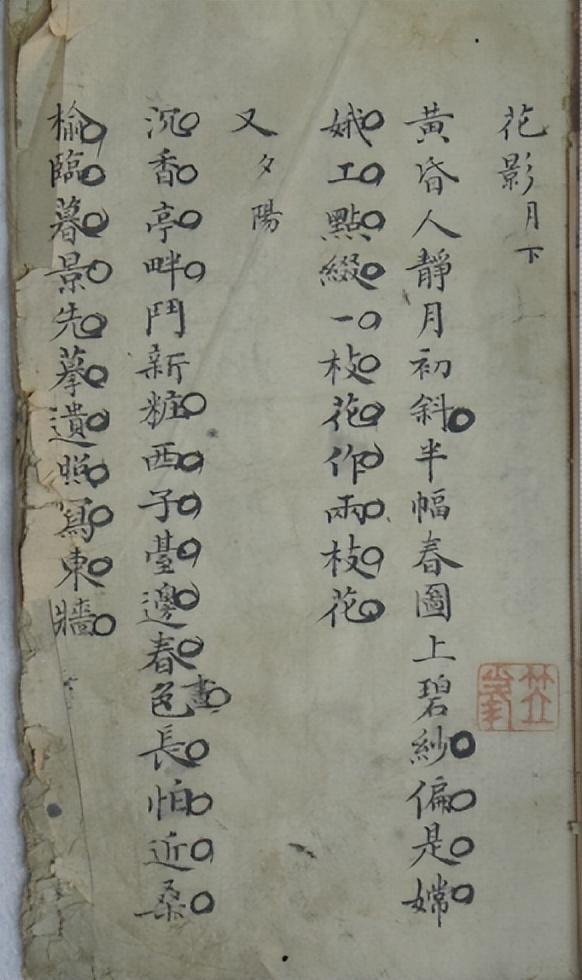 花影月下
黃昏人靜月初斜半幅春圖上碧紗偏是嫦
娥工點綴一枝花作兩枝花
又夕陽
沉香亭畔鬥新粧西子臺邊春色畫長怕近桑
榆臨暮景先摹遺照寫東牆